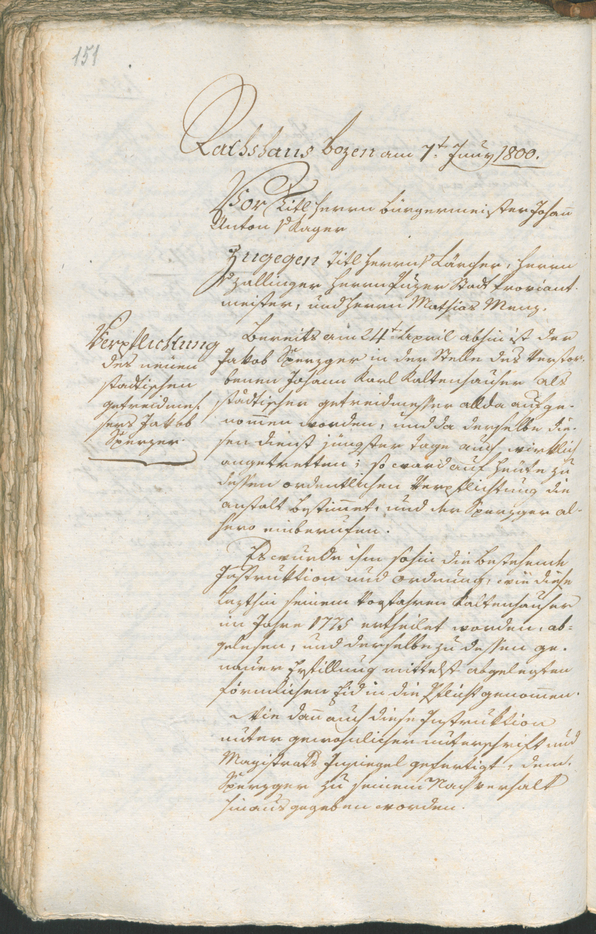 151
Rathshaus Bozen am 7t. Juny 1800.
Vor Titl Herrn Bürgermeister Johann
Anton v Kager
Zugegen Titl Herrn v Larcher, Herrn
v Zallinger Herrn Stadt Proviant-
meister, und Herrn Mathias Menz.
Verpflichtung
des neuen
städtischen
getreidmes-
sers Jakob
Sperzger.
Bereits am 24t. April abhin ist der
Jakob Sperzger in der Stelle des verstor-
benen Johann Karl Kaltenhauser als
städtischer getreidmesser allda aufge-
nommen worden, und da derselbe die-
sen dienst jüngster Tage auch wirklich
angetretten; so ward auf heute zu
dessen ordentlichen Verpflichtung die
anstalt bestimmet, und der Sperzger al-
hero einberufen.
Es wurde ihm sohin die bestehende
Instruktion und Ordnung, wie diese
lezthin seinem Vorfahren Kaltenhauser
im Jahre 1775 ertheilet worden, ab-
gelesen, und derselbe zu dessen ge-
nauer Erfüllung mittelst abgelegten
förmlichen Eid in die Pflicht genommen.
Wie dann auch diese Instruktion
unter gewöhnlicher unterschrift und
Magistrats Insiegel gefertigt, dem
Sperzger zu seinem Nachverhalt
hinausgegeben worden.